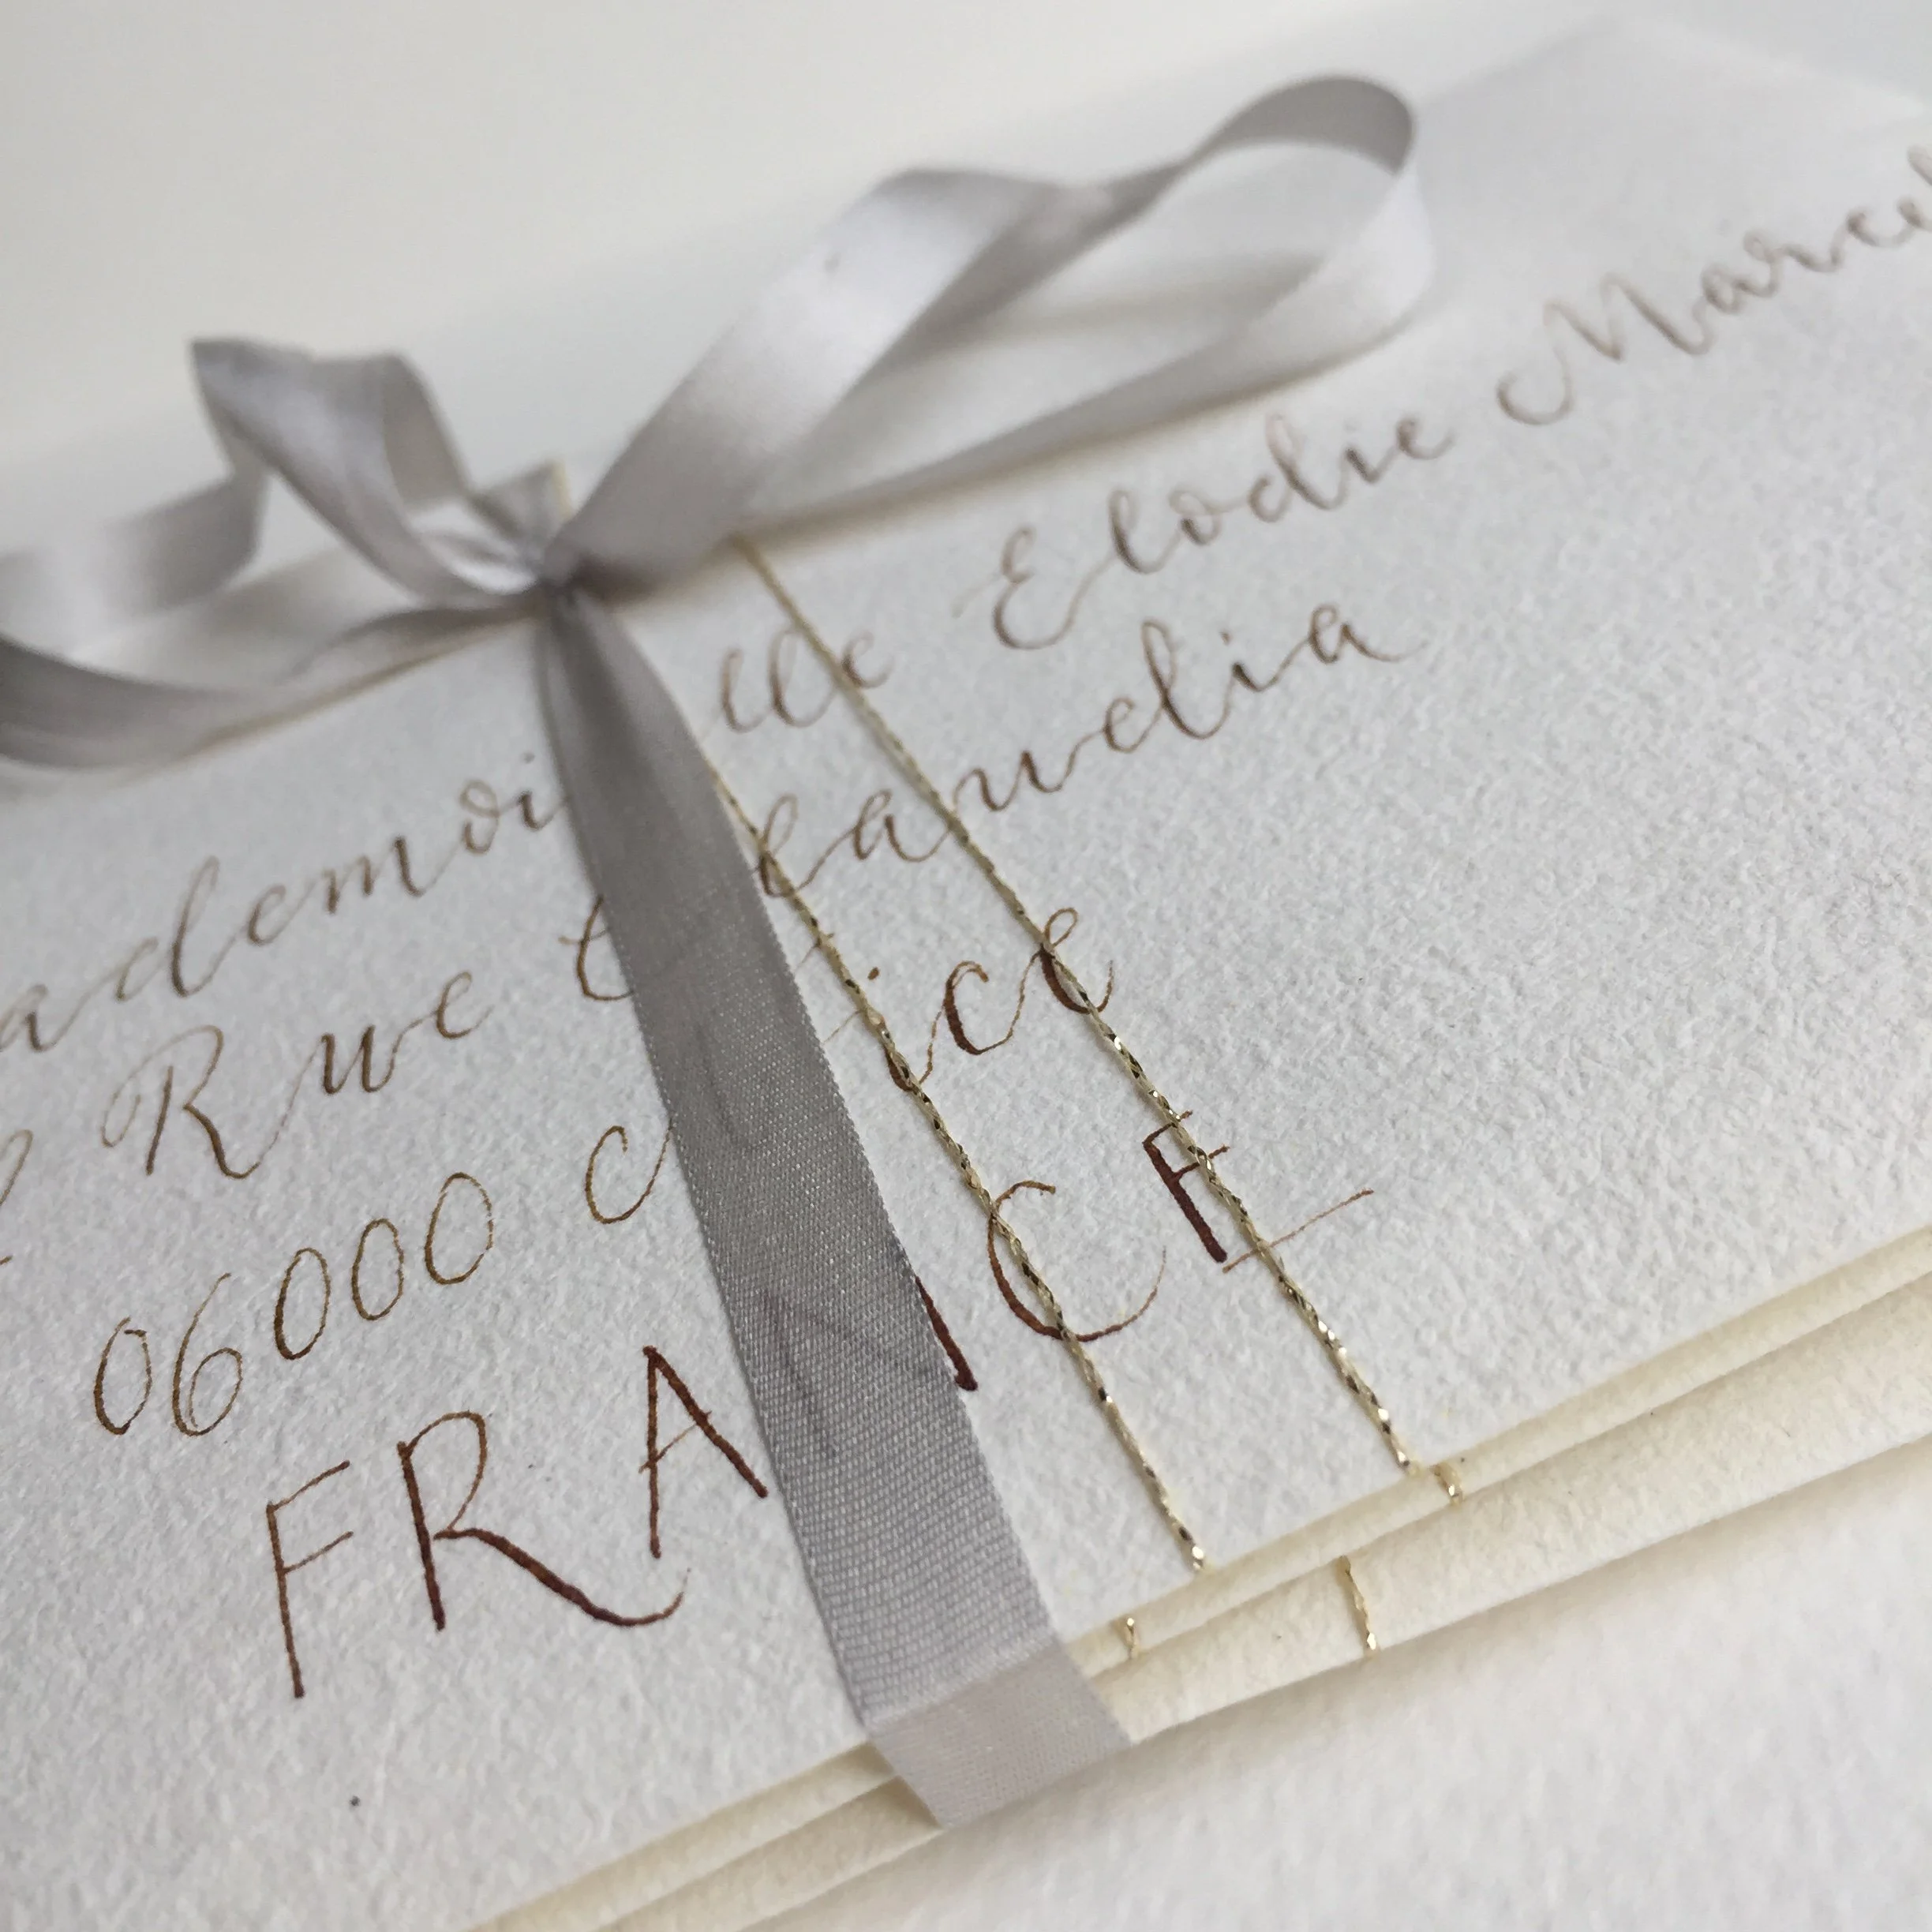 ademoi lle Elodie Marcel
Rue Claudia
06000 Nice
FRANCE